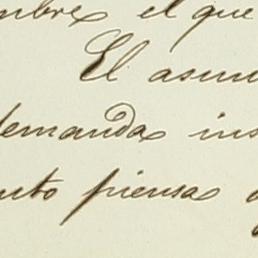 mbre el que
El asun
demanda ins
nto piensa